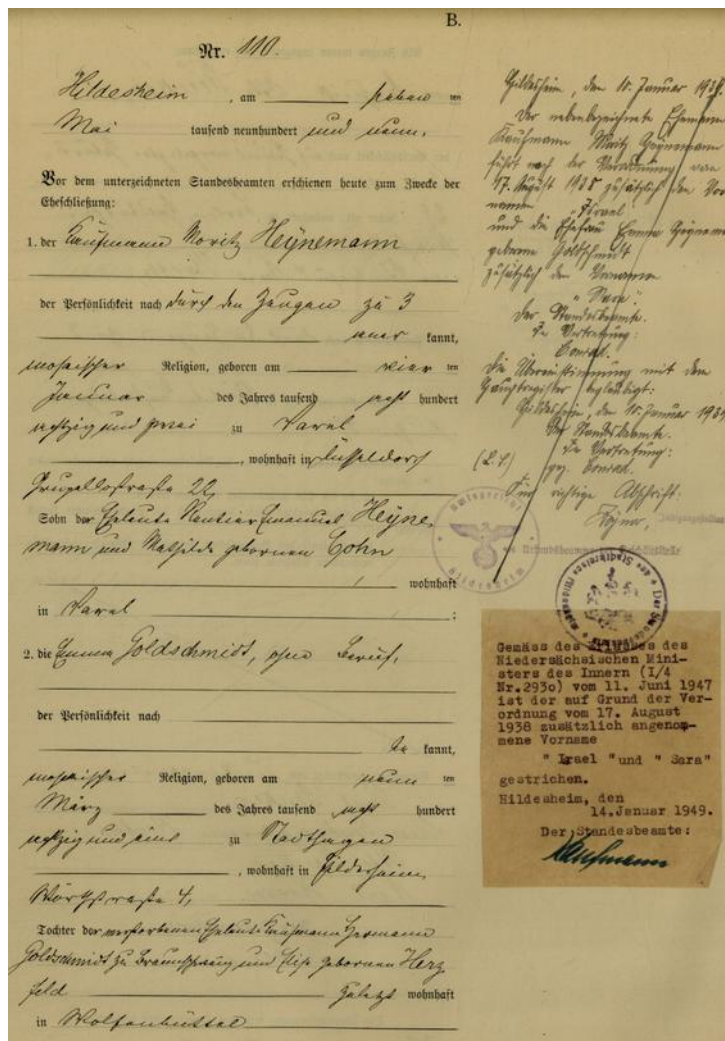 B.
Nr. 110.
Hildesheim, am sieben ten
Mai tausend neunhundert und neun.
Vor dem unterzeichneten Standesbeamten erschienen heute zum Zwecke der
Eheschließung:
1. der Kaufmann Moritz Heynemann
der Persönlichkeit nach durch den Zeugen zu 3
aner kannt,
mosaischer Religion, geboren am vier ten
Januar des Jahres tausend acht hundert
achtzig und zwei zu Varel
, wohnhaft in Düsseldorf
22,
Sohn der Eheleute Rentier Emanuel Heyne-
mann und Mathilde gebornen Cohn
, wohnhaft
in Varel ;
2. die Emma Goldschmidt, ohne Beruf,
der Persönlichkeit nach
be kannt,
mosaischer Religion, geboren am neun ten
März des Jahres tausend acht hundert
achtzig und eins zu Stadthagen
, wohnhaft in Hildesheim,
Wörthstraße 4,
Tochter der verstorbenen Eheleute Kaufmann Hermann
Goldschmidt zu Braunschweig und Elise gebornen Herz-
feld zuletzt wohnhaft
in Wolfenbüttel
Hildesheim, den 10. Januar 1939.
Der nebenbezeichnete Ehemann
Kaufmann Moritz Heynemann
führt nach der Verordnung vom
17. August 1938 zusätzlich den Vor-
namen
"Israel"
und die Ehefrau Emma Heynemann
geborene Goldschmidt
zusätzlich den Vornamen
"Sara".
Der Standesbeamte.
In Vertretung:
Conrad.
Die Übereinstimmung mit dem
Hauptregister beglaubigt:
Hildesheim, den 10. Januar 1939
Der Standesbeamte.
In Vertretung:
(L.S.) gez. Conrad.
Für richtige Abschrift:
Amtsgericht Hildesheim
Gemäss des Erlasses des
Niedersächsischen Mini-
sters des Innern (I/4
Nr.293o) vom 11. Juni 1947
ist der auf Grund der Ver-
ordnung vom 17. August
1938 zusätzlich angenom-
mene Vorname
" Israel "und " Sara"
gestrichen.
Hildesheim, den
14.Januar 1949.
Der Standesbeamte:
Kaufmann